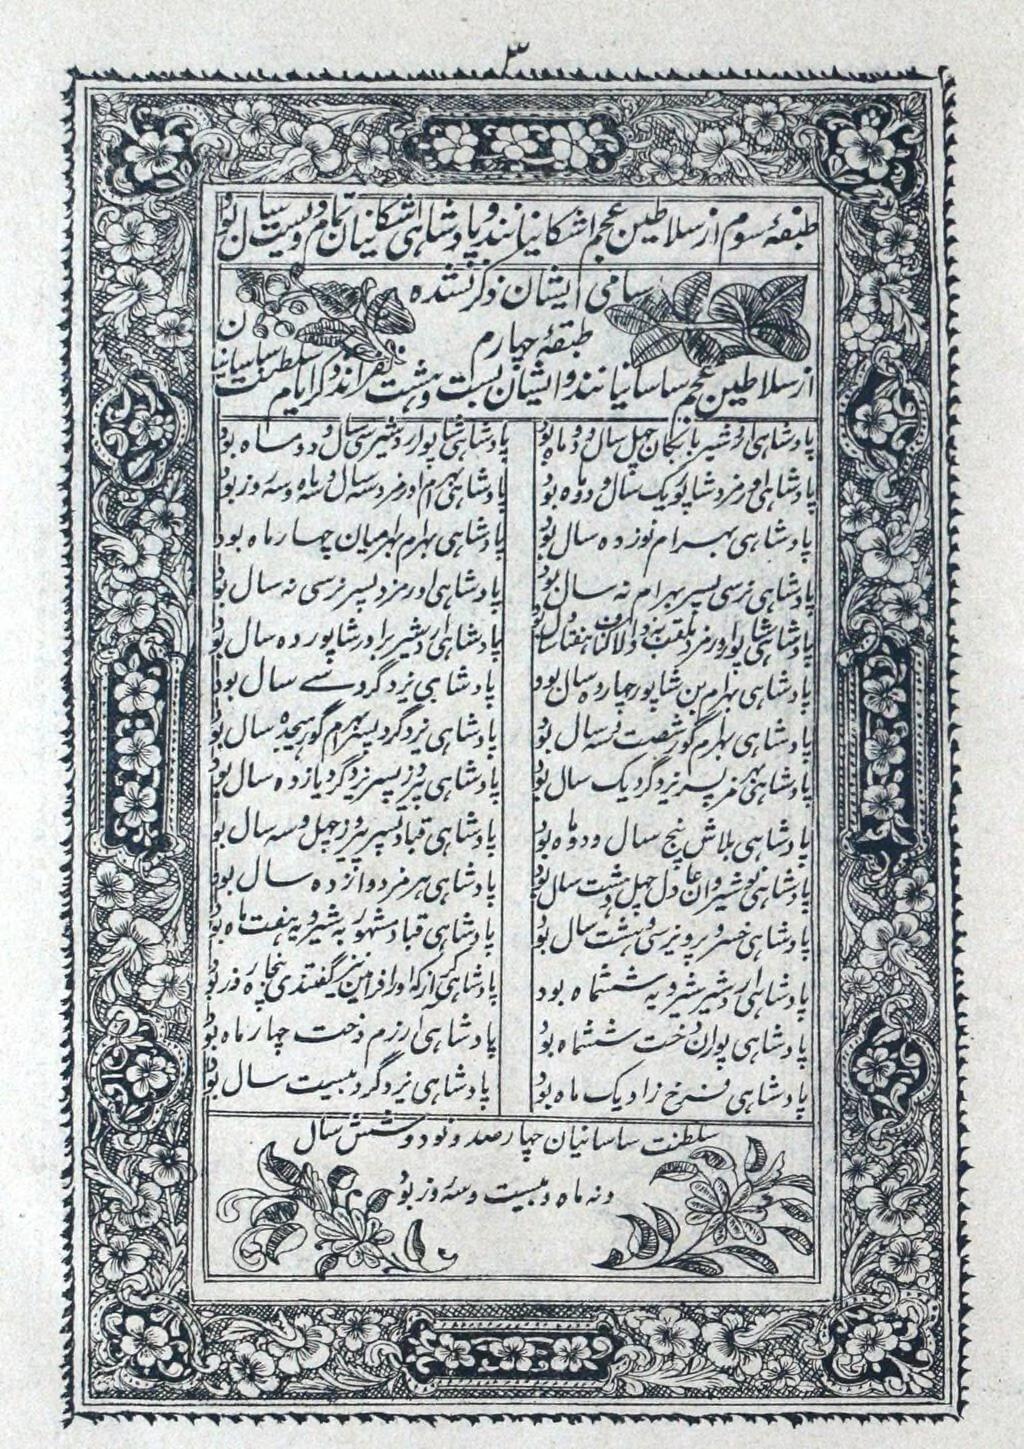 ۳
طبقهٔ سوم از سلاطین عجم اشکانیانند و پادشاهی اشکانیان تمام دویست سال بود
اسامی ایشان ذکر نشده
طبقهٔ چهارم
از سلاطین عجم ساسانیانند و ایشان بیست و هشت نفراند ذکر ایام سلطنت ساسانیان
پادشاهی اردشیر بابکان چهل سال و دو ماه بود
پادشاهی شاپور اردشیر سی سال و دو ماه بود
پادشاهی اورمزد شاپور یک سال و دو ماه بود
پادشاهی بهرام اورمزد سه سال و سه ماه و سه روز بود
پادشاهی بهرام نوزده سال بود
پادشاهی بهرام بهرامیان چهار ماه بود
پادشاهی نرسی پسر بهرام نه سال بود
پادشاهی اورمزد پسر نرسی نه سال بود
پادشاهی شاپور اورمزد ملقب به ذوالاکتاف هفتاد سال بود
پادشاهی اردشیر برادر شاپور ده سال بود
پادشاهی بهرام بن شاپور چهارده سال بود
پادشاهی یزدگرد سی سال بود
پادشاهی بهرام گور شصت و سه سال بود
پادشاهی یزدگرد پسر بهرام گور هیجده سال بود
پادشاهی هرمز پسر یزدگرد یک سال بود
پادشاهی پیروز پسر یزدگرد یازده سال بود
پادشاهی بلاش پنج سال و دو ماه بود
پادشاهی قباد پسر پیروز چهل و سه سال بود
پادشاهی نوشیروان عادل چهل و هشت سال بود
پادشاهی هرمزد دوازده سال بود
پادشاهی خسرو پرویز سی و هشت سال بود
پادشاهی قباد مشهور به شیرویه هفت ماه بود
پادشاهی اردشیر شیرویه ششماه بود
پادشاهی گراز که اورا فرائین گفتندی پنجاه روز بود
پادشاهی پوران دخت ششماه بود
پادشاهی آرزم دخت چهار ماه بود
پادشاهی فرخ زاد یک ماه بود
پادشاهی یزدگرد بیست سال بود
سلطنت ساسانیان چهار صد و نود و شش سال
و نه ماه و بیست و سه روز بود